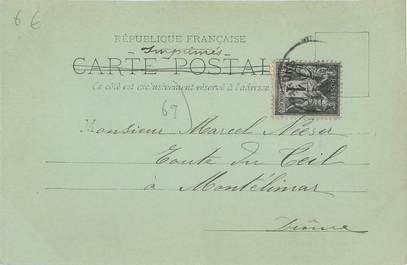 6 €
RÉPUBLIQUE FRANÇAISE
Imprimés
CARTE POSTALE
Ce côté est exclusivement réservé à l'adresse
69
Monsieur Marcel
Route du Teil
à Montélimar
Drôme